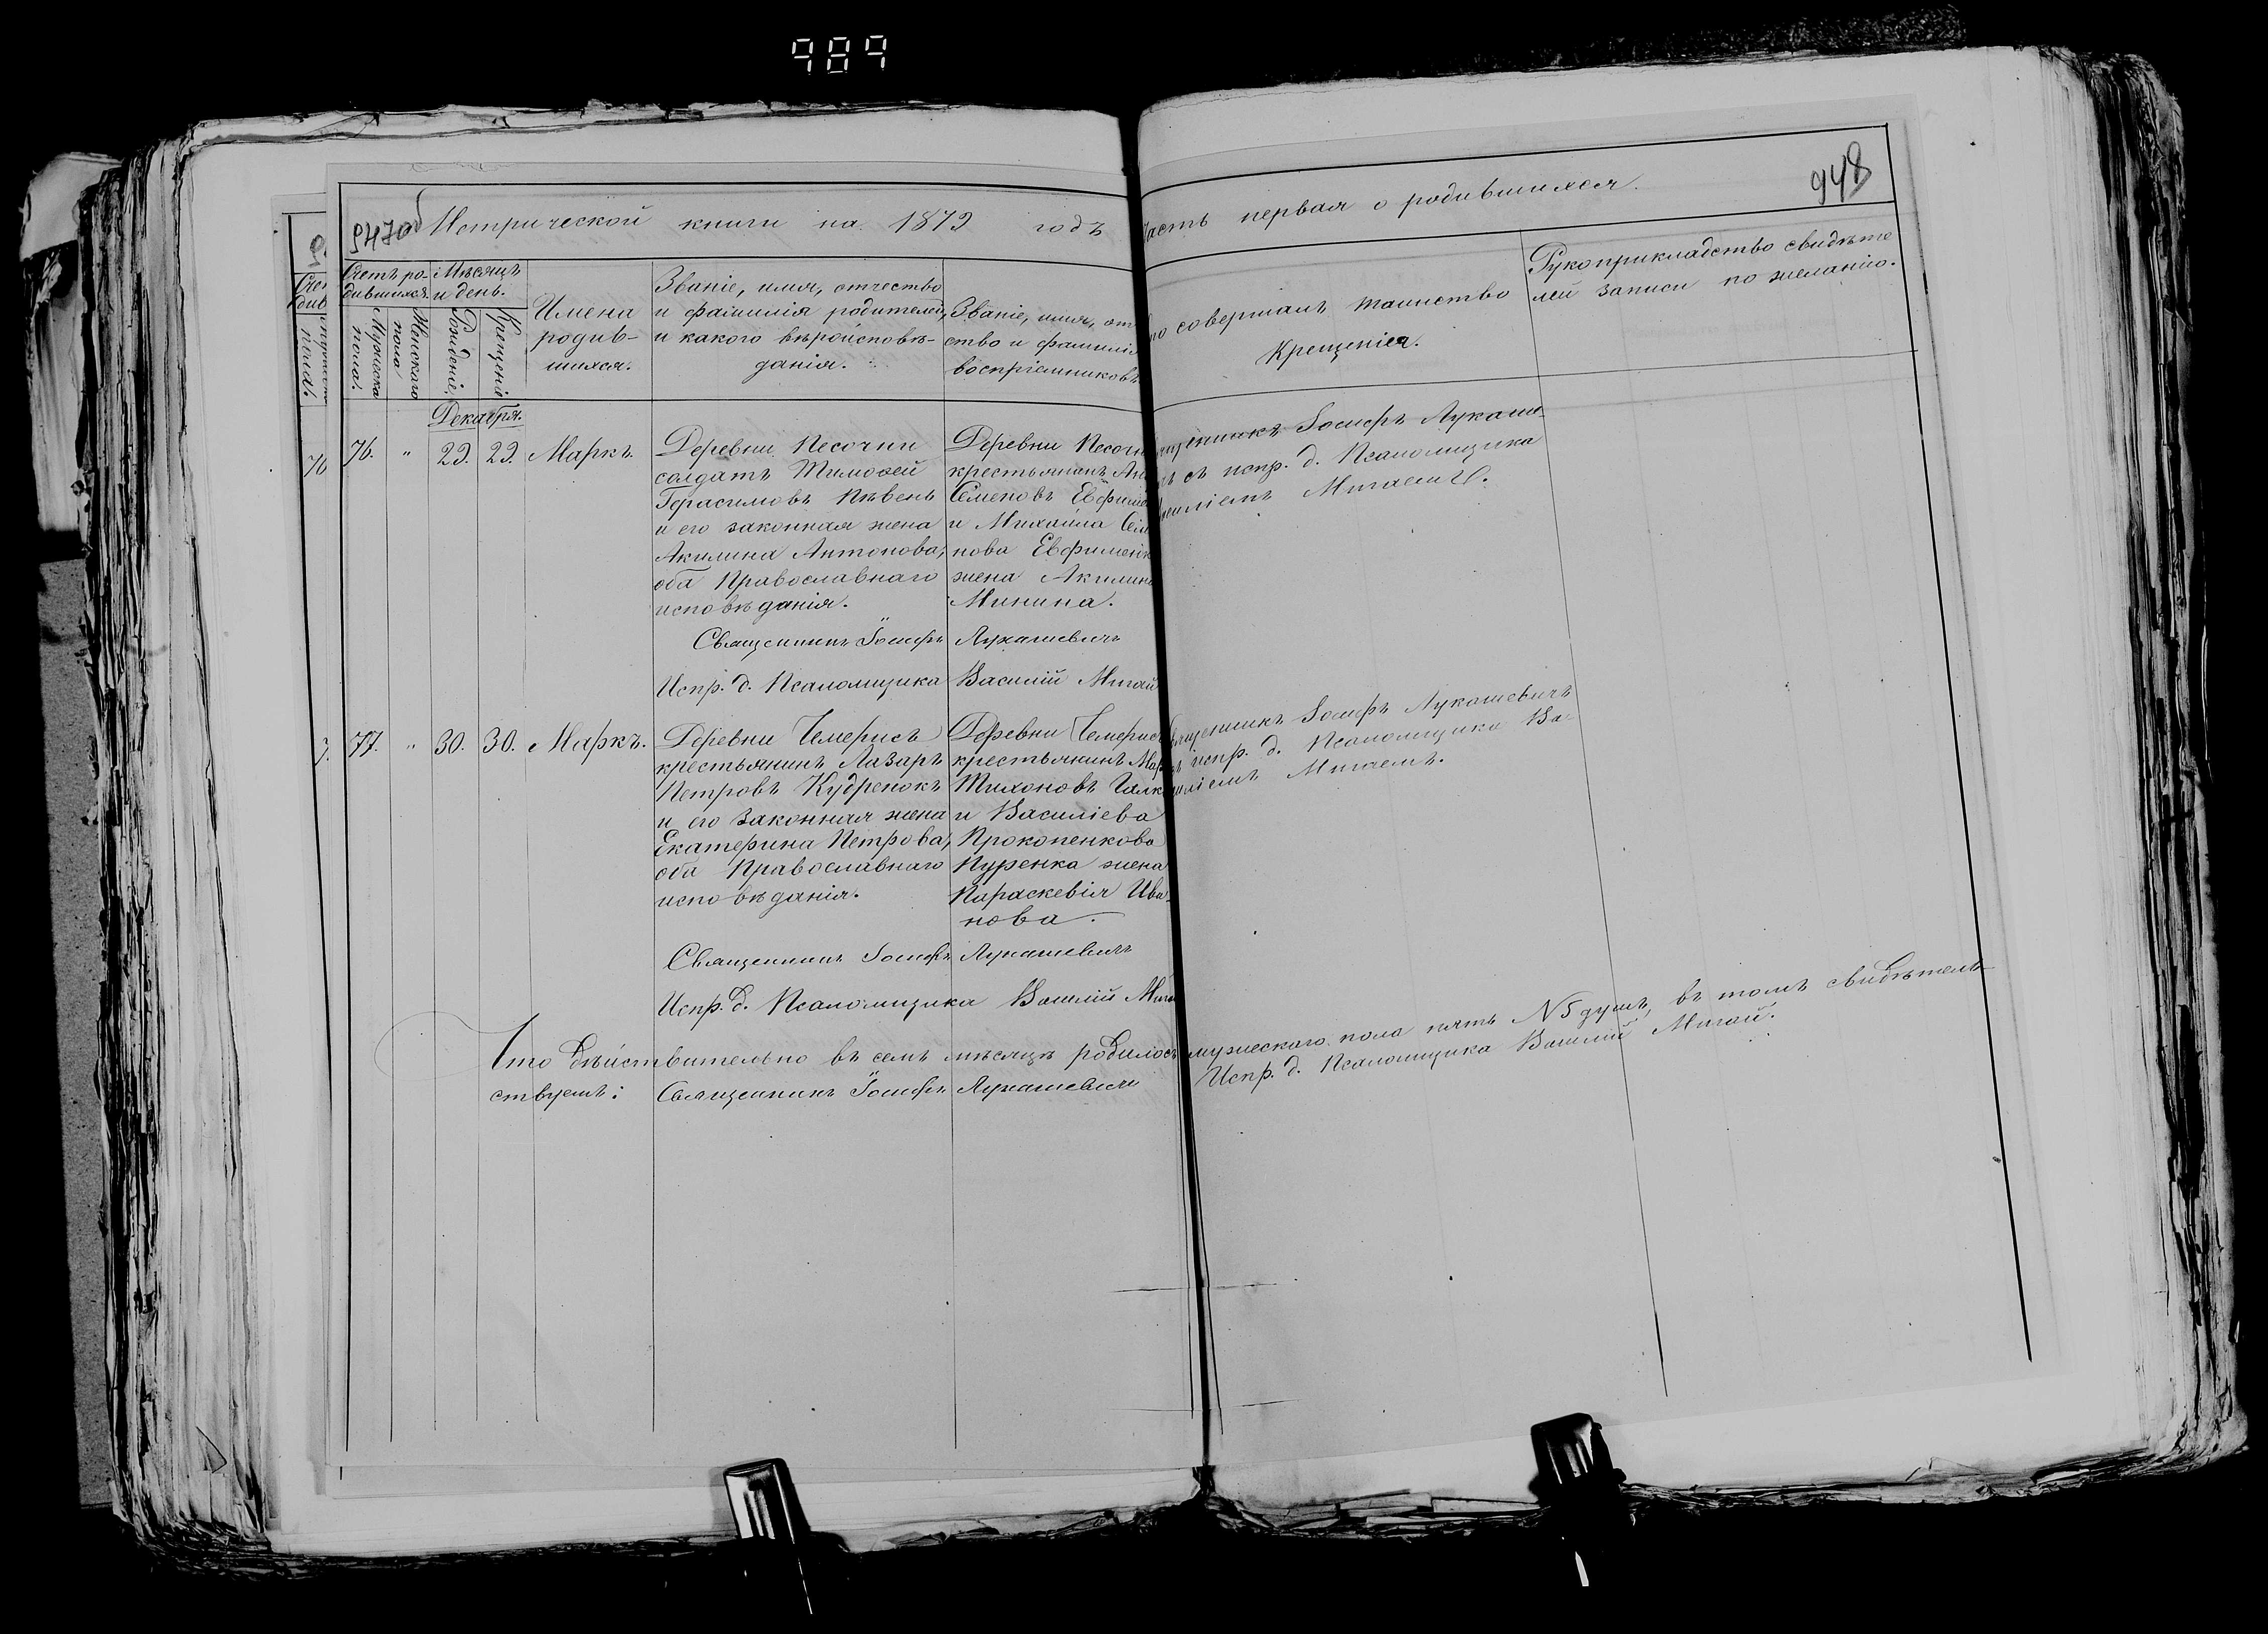 989
947об Метрической книги на 1879 годъ
Часть первая о родившихся.
948
Счетъ ро-
дившихся.
Мужеска
пола.
Женскаго
пола
Мѣсяцъ
и день.
Рожденіе.
Крещеніе
Имена
родив-
шихся.
Званіе, имя, отчество
и фамилія родителей,
и какого вѣроисповѣ-
данія.
Званіе, имя, от
ство и фамилія
воспріемниковъ
то совершалъ таинство
Крещенія.
Рукоприкладство свидѣте
лей записи по желанію.
Декабря.
76. " 29. 29. Маркъ.
Деревни Песочни
солдатъ Тимоѳей
Герасимовъ Пѣвень
и его законная жена
Акилина Антонова,
оба Православнаго
исповѣданія.
Деревни Песоч
крестьянинъ
Семеновъ Евфиме
и Михаила Сем
нова Евфименк
жена Акилина
Минина.
Іосифъ Лукаше-
съ испр. д. Псаломщика
Мигаемъ.
Священникъ Іосифъ Лукашевичъ
Испр. д. Псаломщика Василій Мигай
77. " 30. 30. Маркъ.
Деревни Чемерисъ
крестьянинъ Лазарь
Петровъ Кудренокъ
и его законная жена
Екатерина Петрова,
оба Православнаго
исповѣданія.
Деревни Чемерисъ
крестьянинъ
Тихоновъ Галк
и Василіева
Прокопенкова
Куренка жена
Параскевія Ива-
нова.
Священникъ Іосифъ Лукашевичъ
испр. д. Псаломщика Ва-
силіемъ Мигаемъ.
Священникъ Іосифъ Лукашевичъ
Испр. д. Псаломщика Василій Мига
Что дѣйствительно въ семъ мѣсяцѣ родилось мужескаго пола пять N5 душъ, въ томъ свидѣтель-
ствуемъ: Священникъ Іосифъ Лукашевичъ Испр. д. Псаломщика Василій Мигай.